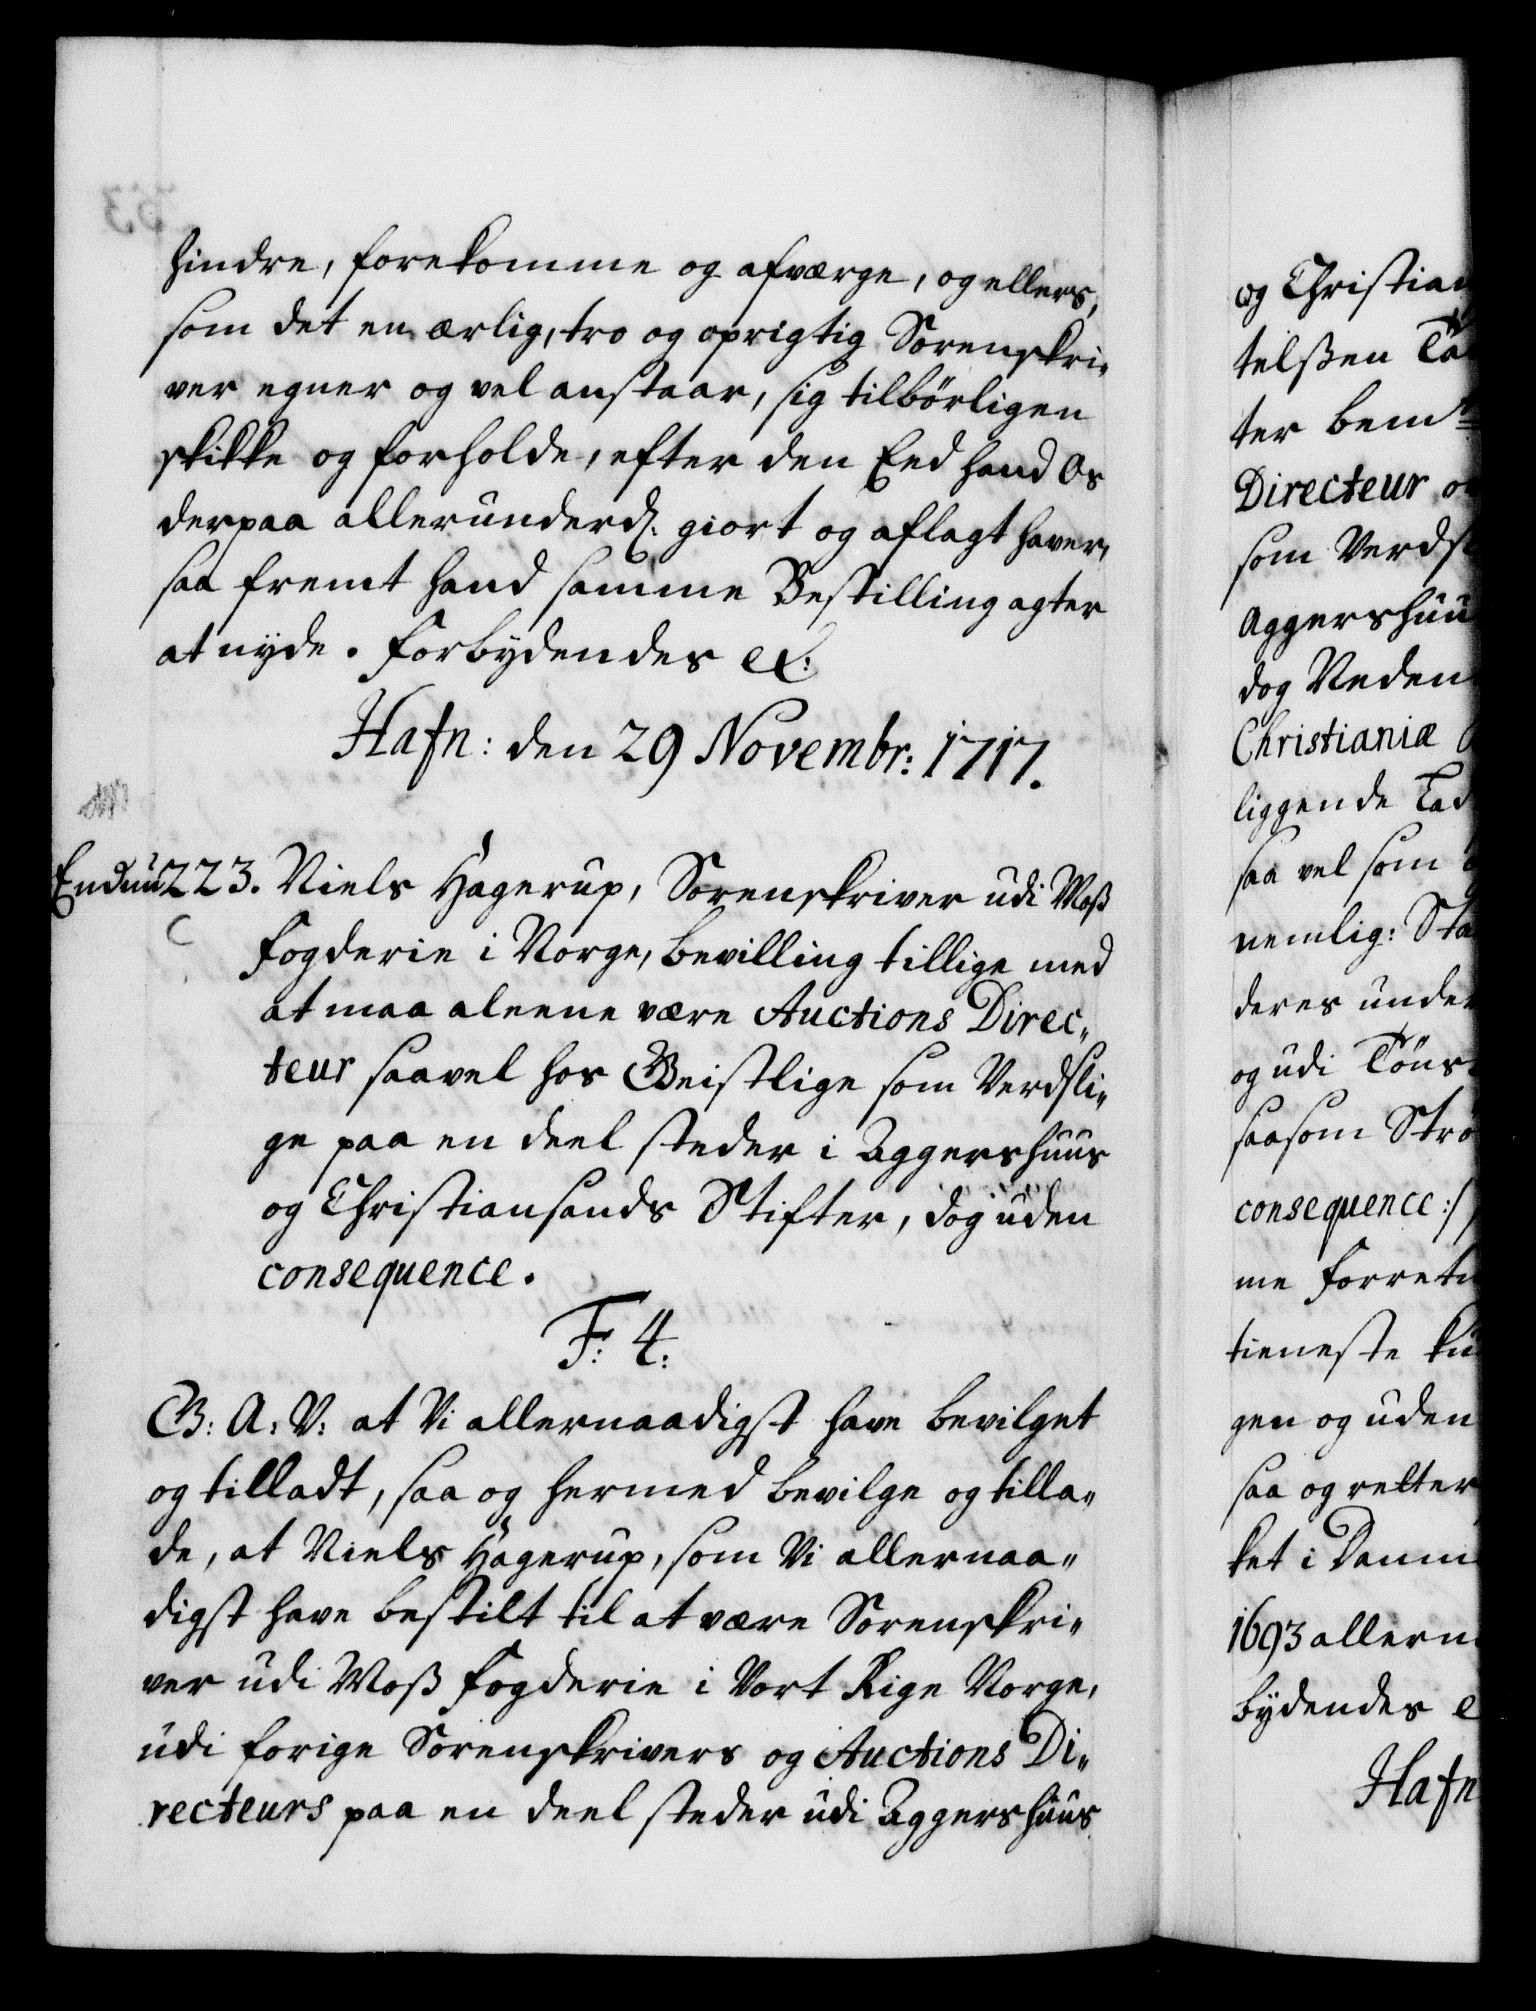 hindre, forekomme og afværge, og ellers,
som det en ærlig, tro og oprigtig Sorenskri„
ver egner og vel anstaar, sig tilbörligen
skikke og forholde, efter den Eed hand Os
derpaa allerunderd. giort og aflagt haver,
saa fremt hand samme Bestilling agter
at nyde. Forbydendes etc:
Hafn: den 29 Novembr: 1717.
Endnu 223. Niels Hagerup, Sorenskriver udi Moß
Fogderie i Norge, bevilling tillige med
at maa aleene være Auctions Direc„
teur saavel hos Geistlige som Verdsli„
ge paa en deel steder i Aggershuus
og Christiansands Stifter, dog uden
consequence.
F: 4:
G: A: V: at Vi allernaadigst have bevilget
og tilladt, saa og hermed bevilge og tilla„
de, at Niels Hagerup, som Vi allernaa„
digst have bestilt til at være Sorenskri„
ver udi Moß Fogderie i Vort Rige Norge,
udi forige Sorenskrivers og Auctions Di„
recteurs paa en deel steder udi Aggershuus
og Christian
telßen
ter bemt
Directeur
som Verdsl
Aggershuu
dog Neden
Christianiæ
liggende Lad
saa vel som
nemlig: Sta
deres under
og udi Töns
saasom Strö
consequence:/
me forret
tieneste ku
gen og uden
saa og retter
ket i Danm
1693 allern
bydendes e
Hafn